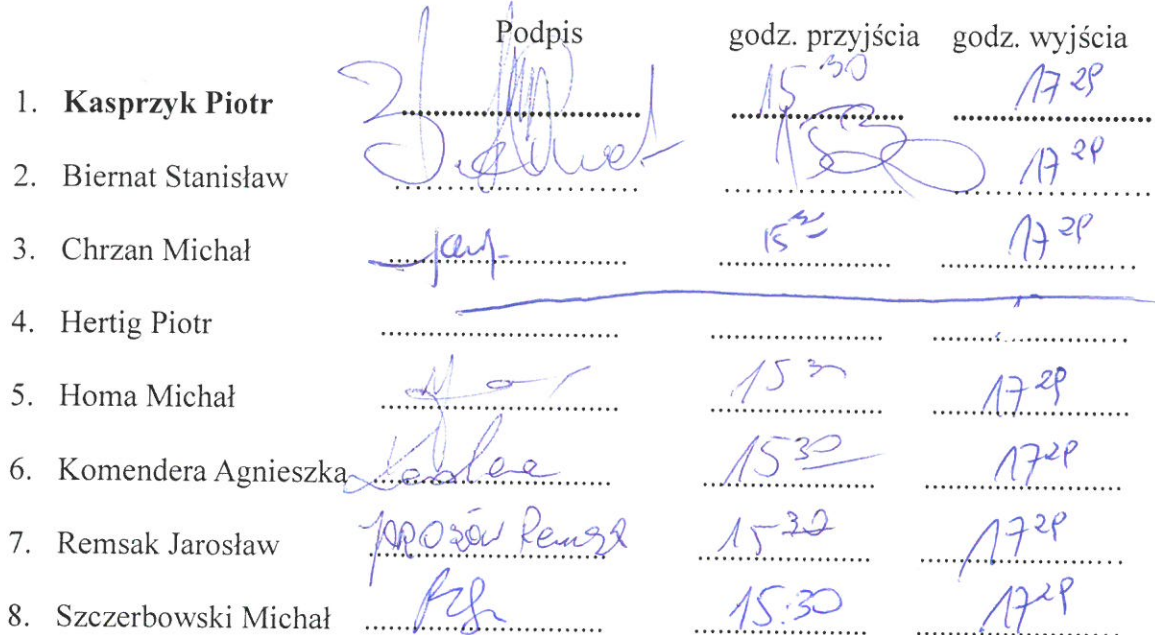 Podpis godz. przyjścia godz. wyjścia
1. Kasprzyk Piotr 15 30 17 29
2. Biernat Stanisław 17 29
3. Chrzan Michał 15 17 29
4. Hertig Piotr
5. Homa Michał 15 30 17 29
6. Komendera Agnieszka 15 30 17 29
7. Remsak Jarosław Jarosław Remsak 15 30 17 29
8. Szczerbowski Michał 15:30 17 29